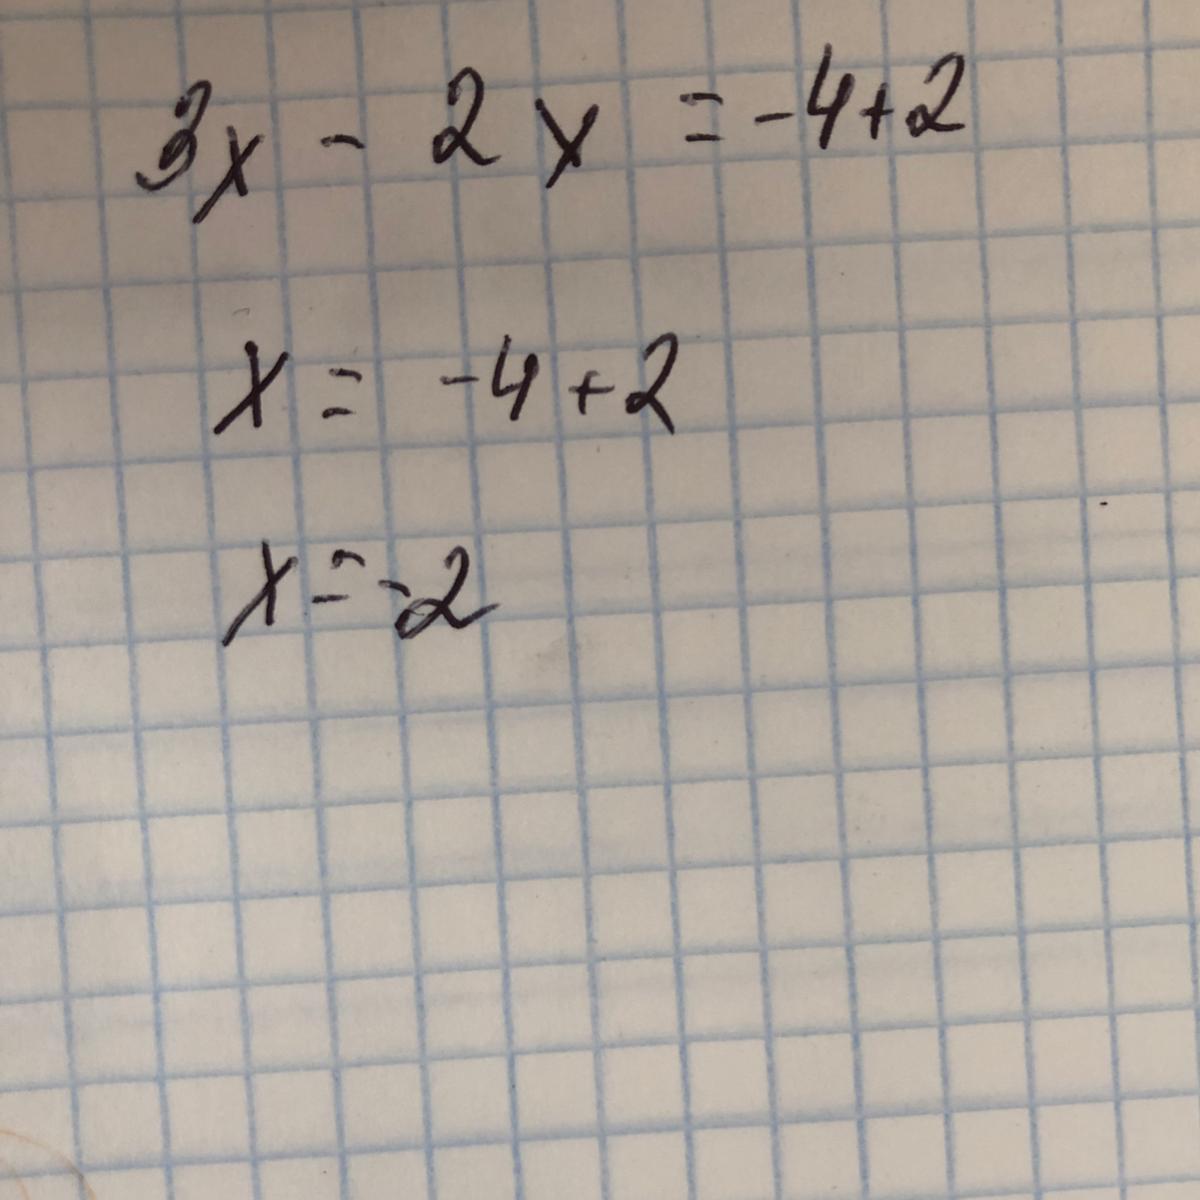 3x - 2x = -4+2
x = -4+2
x = -2